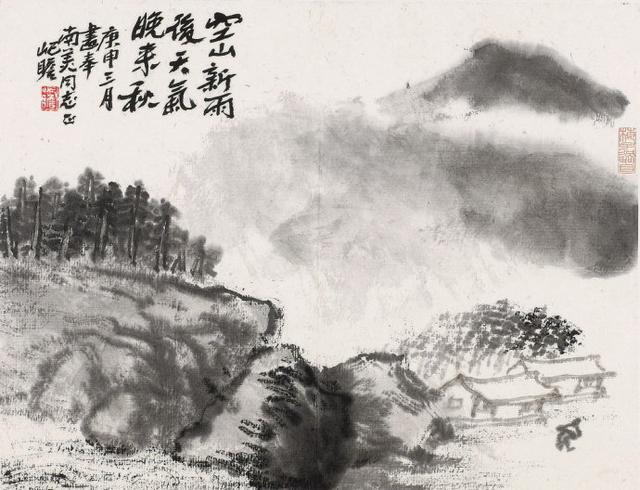 空山新雨
後天氣
晚來秋
庚申三月
畫奉
南美同志正
屺瞻